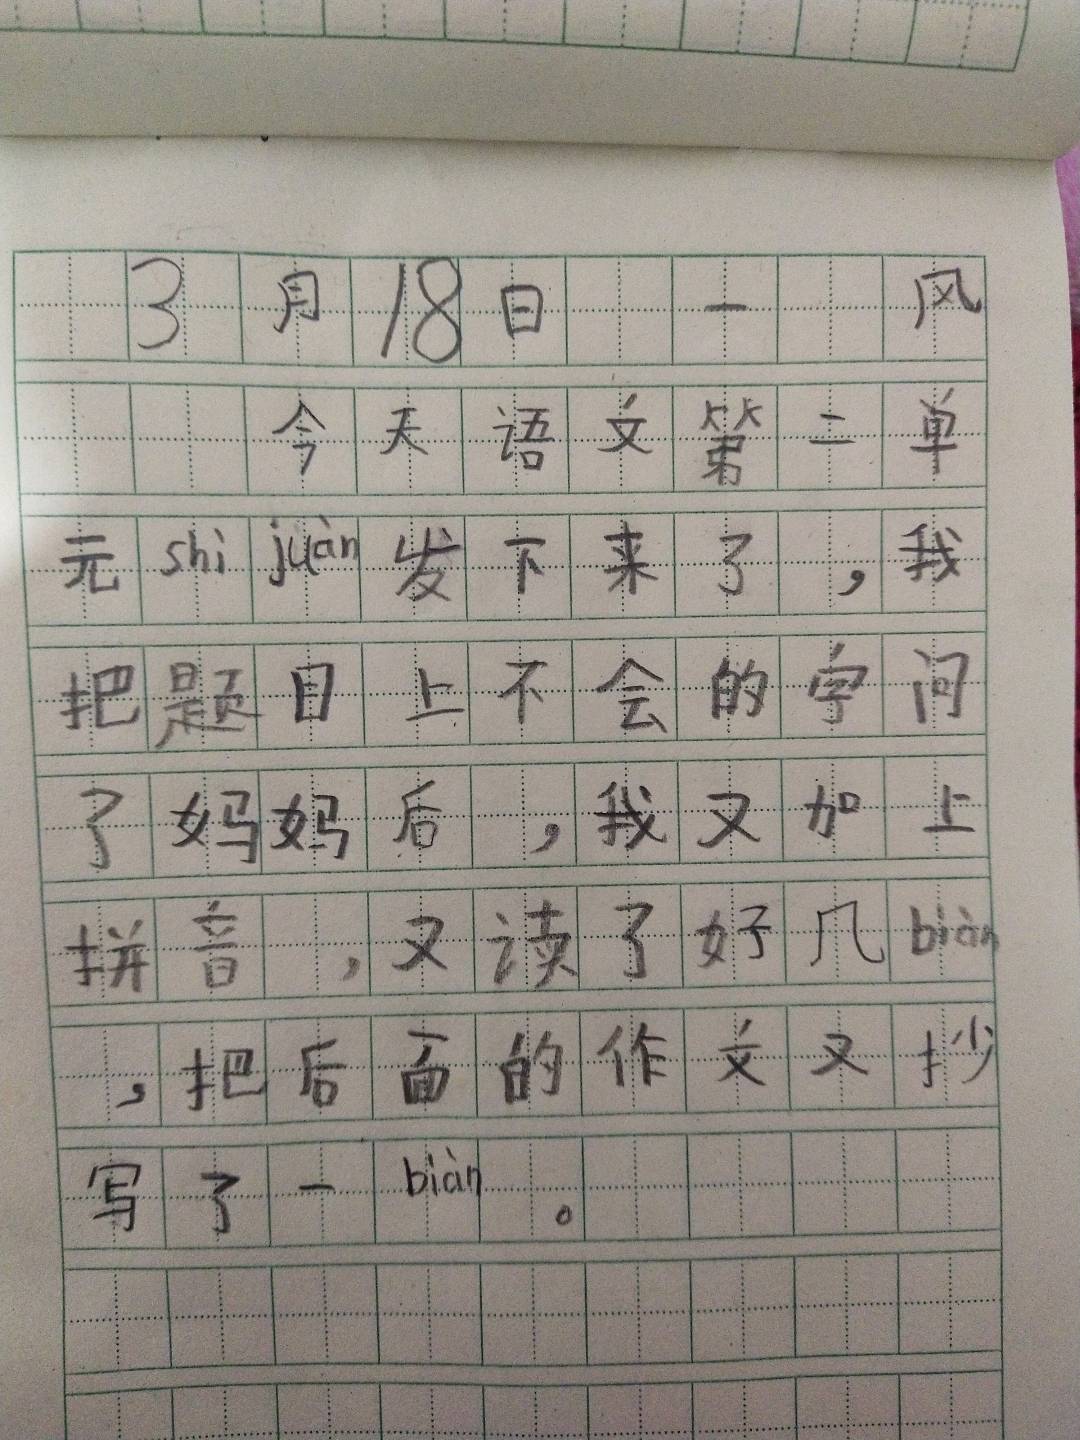 3月18日 一 风
今天语文第二单
元shì juàn发下来了，我
把题目上不会的字问
了妈妈后，我又加上
拼音，又读了好几biàn
，把后面的作文又抄
写了一biàn。